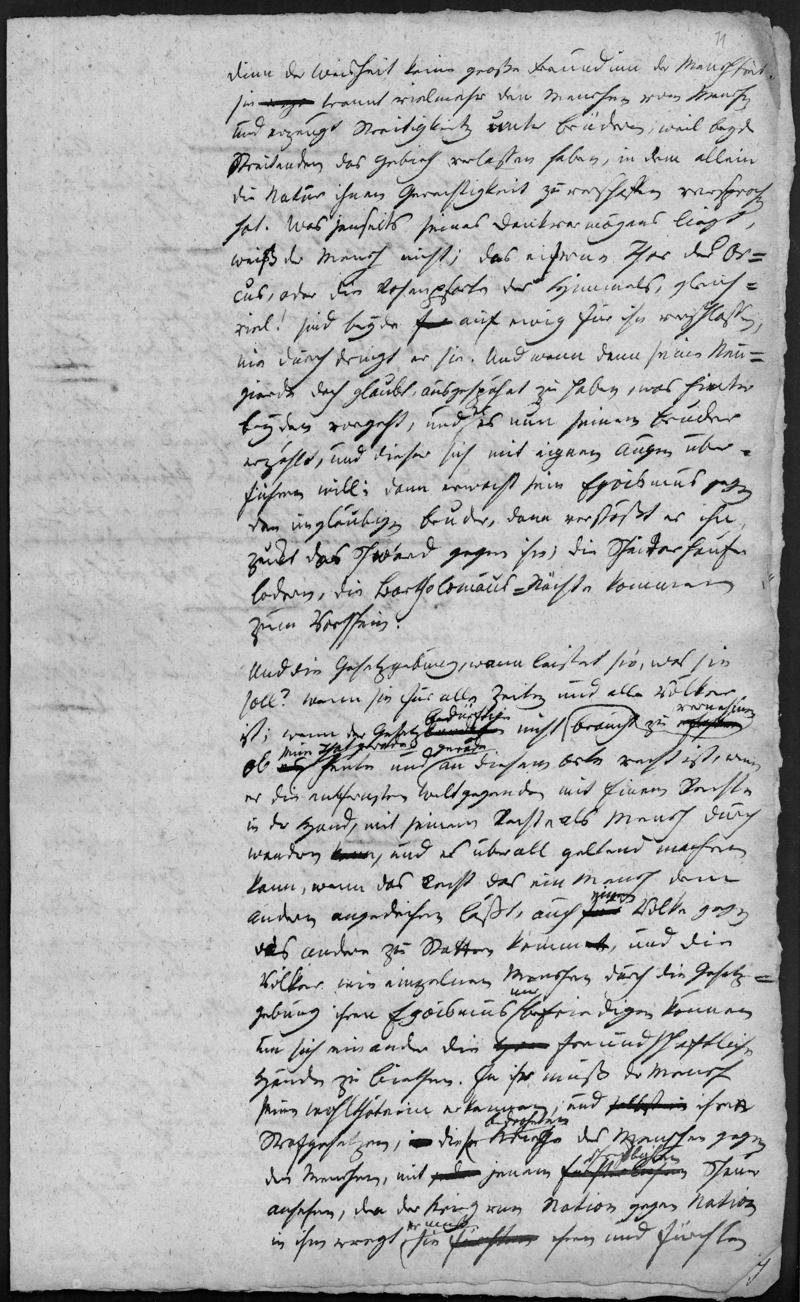 dinn der Weisheit keine große Freundinn der Menschheit.
sie trennt vielmehr den Menschen vom Menschen
und erzeugt Streitigkeiten unter Brüdern, weil beyde
Streitenden das Gebieth verlassen haben, in dem allein
die Natur ihnen Gerechtigkeit zu verschaffen versprochen
hat. Was jenseits seines Denkvermögens liegt,
weiß der Mensch nicht; das eiserne Thor des Or=
cus, oder die Rosenpforte des Himmels, gleich=
viel! sind beyde auf ewig für ihn verschlossen,
nie durchdringt er sie. Und wenn denn seine Neu=
gierde doch glaubt, ausgespähet zu haben, was hinter
beyden vorgeht, und er es nun seinem Bruder
erzählt, und dieser sich mit eignen Augen über=
führen will; dann erwacht sein Egoismus gegen
den ungläubigen Bruder, dann verstößt er ihn,
zückt das Schwerd gegen ihn; die Scheiterhaufen
lodern, die Bartholomäus=Nächte kommen
zum Vorschein.
Und die Gesetzgebung, wann leistet sie, was sie
soll? wenn sie für alle Zeiten und alle Völker
ist; wenn der Gesetz bedürftige nicht braucht zu vernehmen
ob seine That gerade heute und gerade an diesem Orte recht ist, wenn
er die entferntesten Weltgegenden mit Einem Rechte
in der Hand, mit seinem Rechte als Mensch durch
wandern, und es überall geltend machen
kann, wenn das Recht das ein Mensch dem
andern angedeihen läßt, auch einem Volke gegen
das andere zu Statten kommt, und die
Völker wie einzelnen Menschen durch die Gesetz=
gebung ihren Egoismus befriedigen können
um sich einander die freundschaftlichen
Hände zu biethen. In ihr muß der Mensch
seine Wohlthäterin erkennen, und ihren
Strafgesetzen, diese Kriege des Menschen gegen
den Menschen, mit jenem Scheu
ansehen, den der Krieg von Nation gegen Nation
in ihm erregt, er muß sie ehren und fürchten